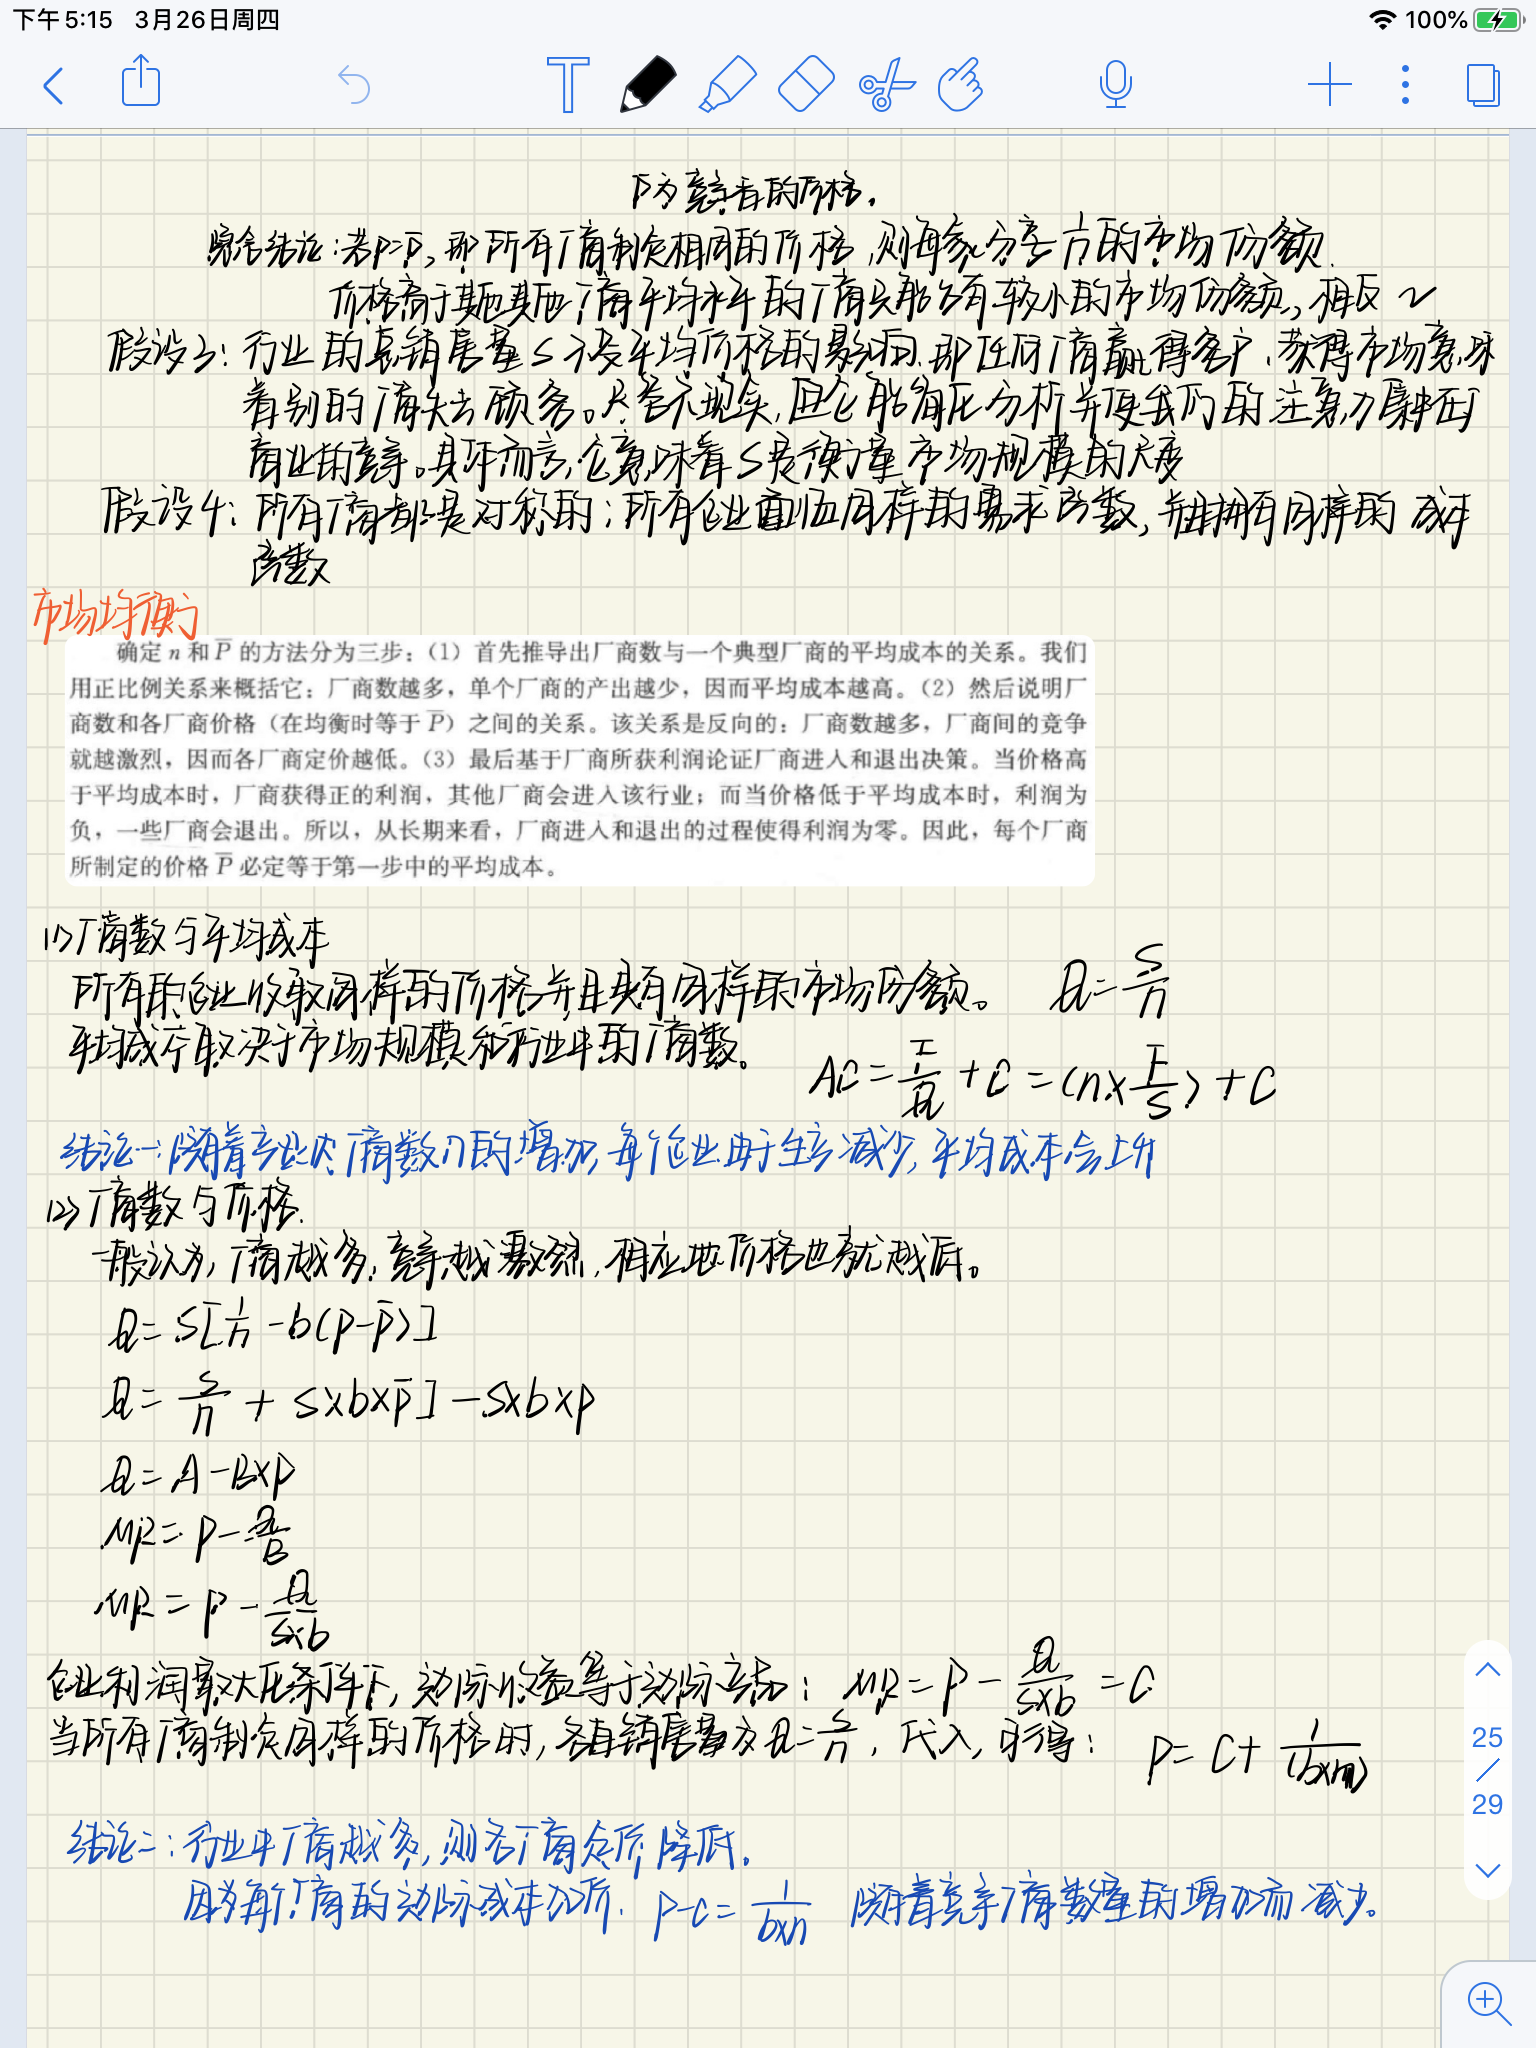 下午5:15 3月26日周四
100%
P̄为竞争者的价格.
综合结论:若P=P̄,即所有厂商制定相同的价格,则每家分享1/n的市场份额.
价格高于其他其他厂商平均水平的厂商只能占有较小的市场份额,相反~
假设3:行业的总销售量S不受平均价格的影响.即任何厂商赢得客户、获得市场意味
着别的厂商失去顾客。尽管不现实,但它能简化分析并使我们的注意力集中在厂
商业的竞争。具体而言,它意味着S是衡量市场规模的尺度
假设4:所有厂商都是对称的:所有企业面临同样的需求函数,并且拥有同样的成本
函数
市场均衡
确定 n 和 P̄ 的方法分为三步:(1)首先推导出厂商数与一个典型厂商的平均成本的关系。我们
用正比例关系来概括它:厂商数越多,单个厂商的产出越少,因而平均成本越高。(2)然后说明厂
商数和各厂商价格(在均衡时等于 P̄)之间的关系。该关系是反向的:厂商数越多,厂商间的竞争
就越激烈,因而各厂商定价越低。(3)最后基于厂商所获利润论证厂商进入和退出决策。当价格高
于平均成本时,厂商获得正的利润,其他厂商会进入该行业;而当价格低于平均成本时,利润为
负,一些厂商会退出。所以,从长期来看,厂商进入和退出的过程使得利润为零。因此,每个厂商
所制定的价格 P̄ 必定等于第一步中的平均成本。
(1)厂商数与平均成本
所有的企业收取同样的价格并且具有同样的市场份额。 Q=S/n
平均成本取决于市场规模和行业中的厂商数。
AC=F/Q+C=(n×F/S)+C
结论一:随着产业内厂商数n的增加,每个企业由于生产减少,平均成本会上升
(2)厂商数与价格.
一般认为,厂商越多,竞争越激烈,相应地价格也就越低。
Q=S[1/n-b(P-P̄)]
Q=S/n+S×b×P̄]-S×b×P
Q=A-B×P
MR=P-Q/B
MR=P-Q/(S×b)
企业利润最大化条件下,边际收益等于边际成本: MR=P-Q/(S×b)=C
当所有厂商制定同样的价格时,各自销售量为Q=S/n,代入,可得: P=C+1/(b×n)
结论二:行业中厂商越多,则各厂商定价降低.
因为每个厂商的边际成本加价: P-C=1/(b×n) 随着竞争厂商数量的增加而减少。
25
/
29